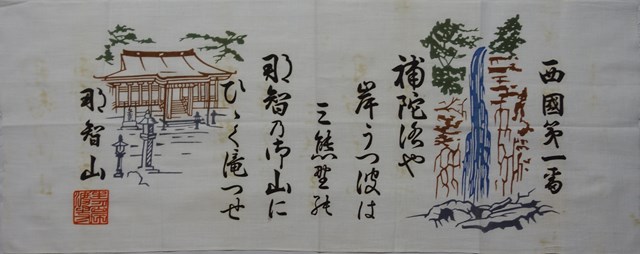 西國第一番
補陀洛や
岸うつ波は
三熊野の
那智乃御山に
ひゞく滝つせ
那智山